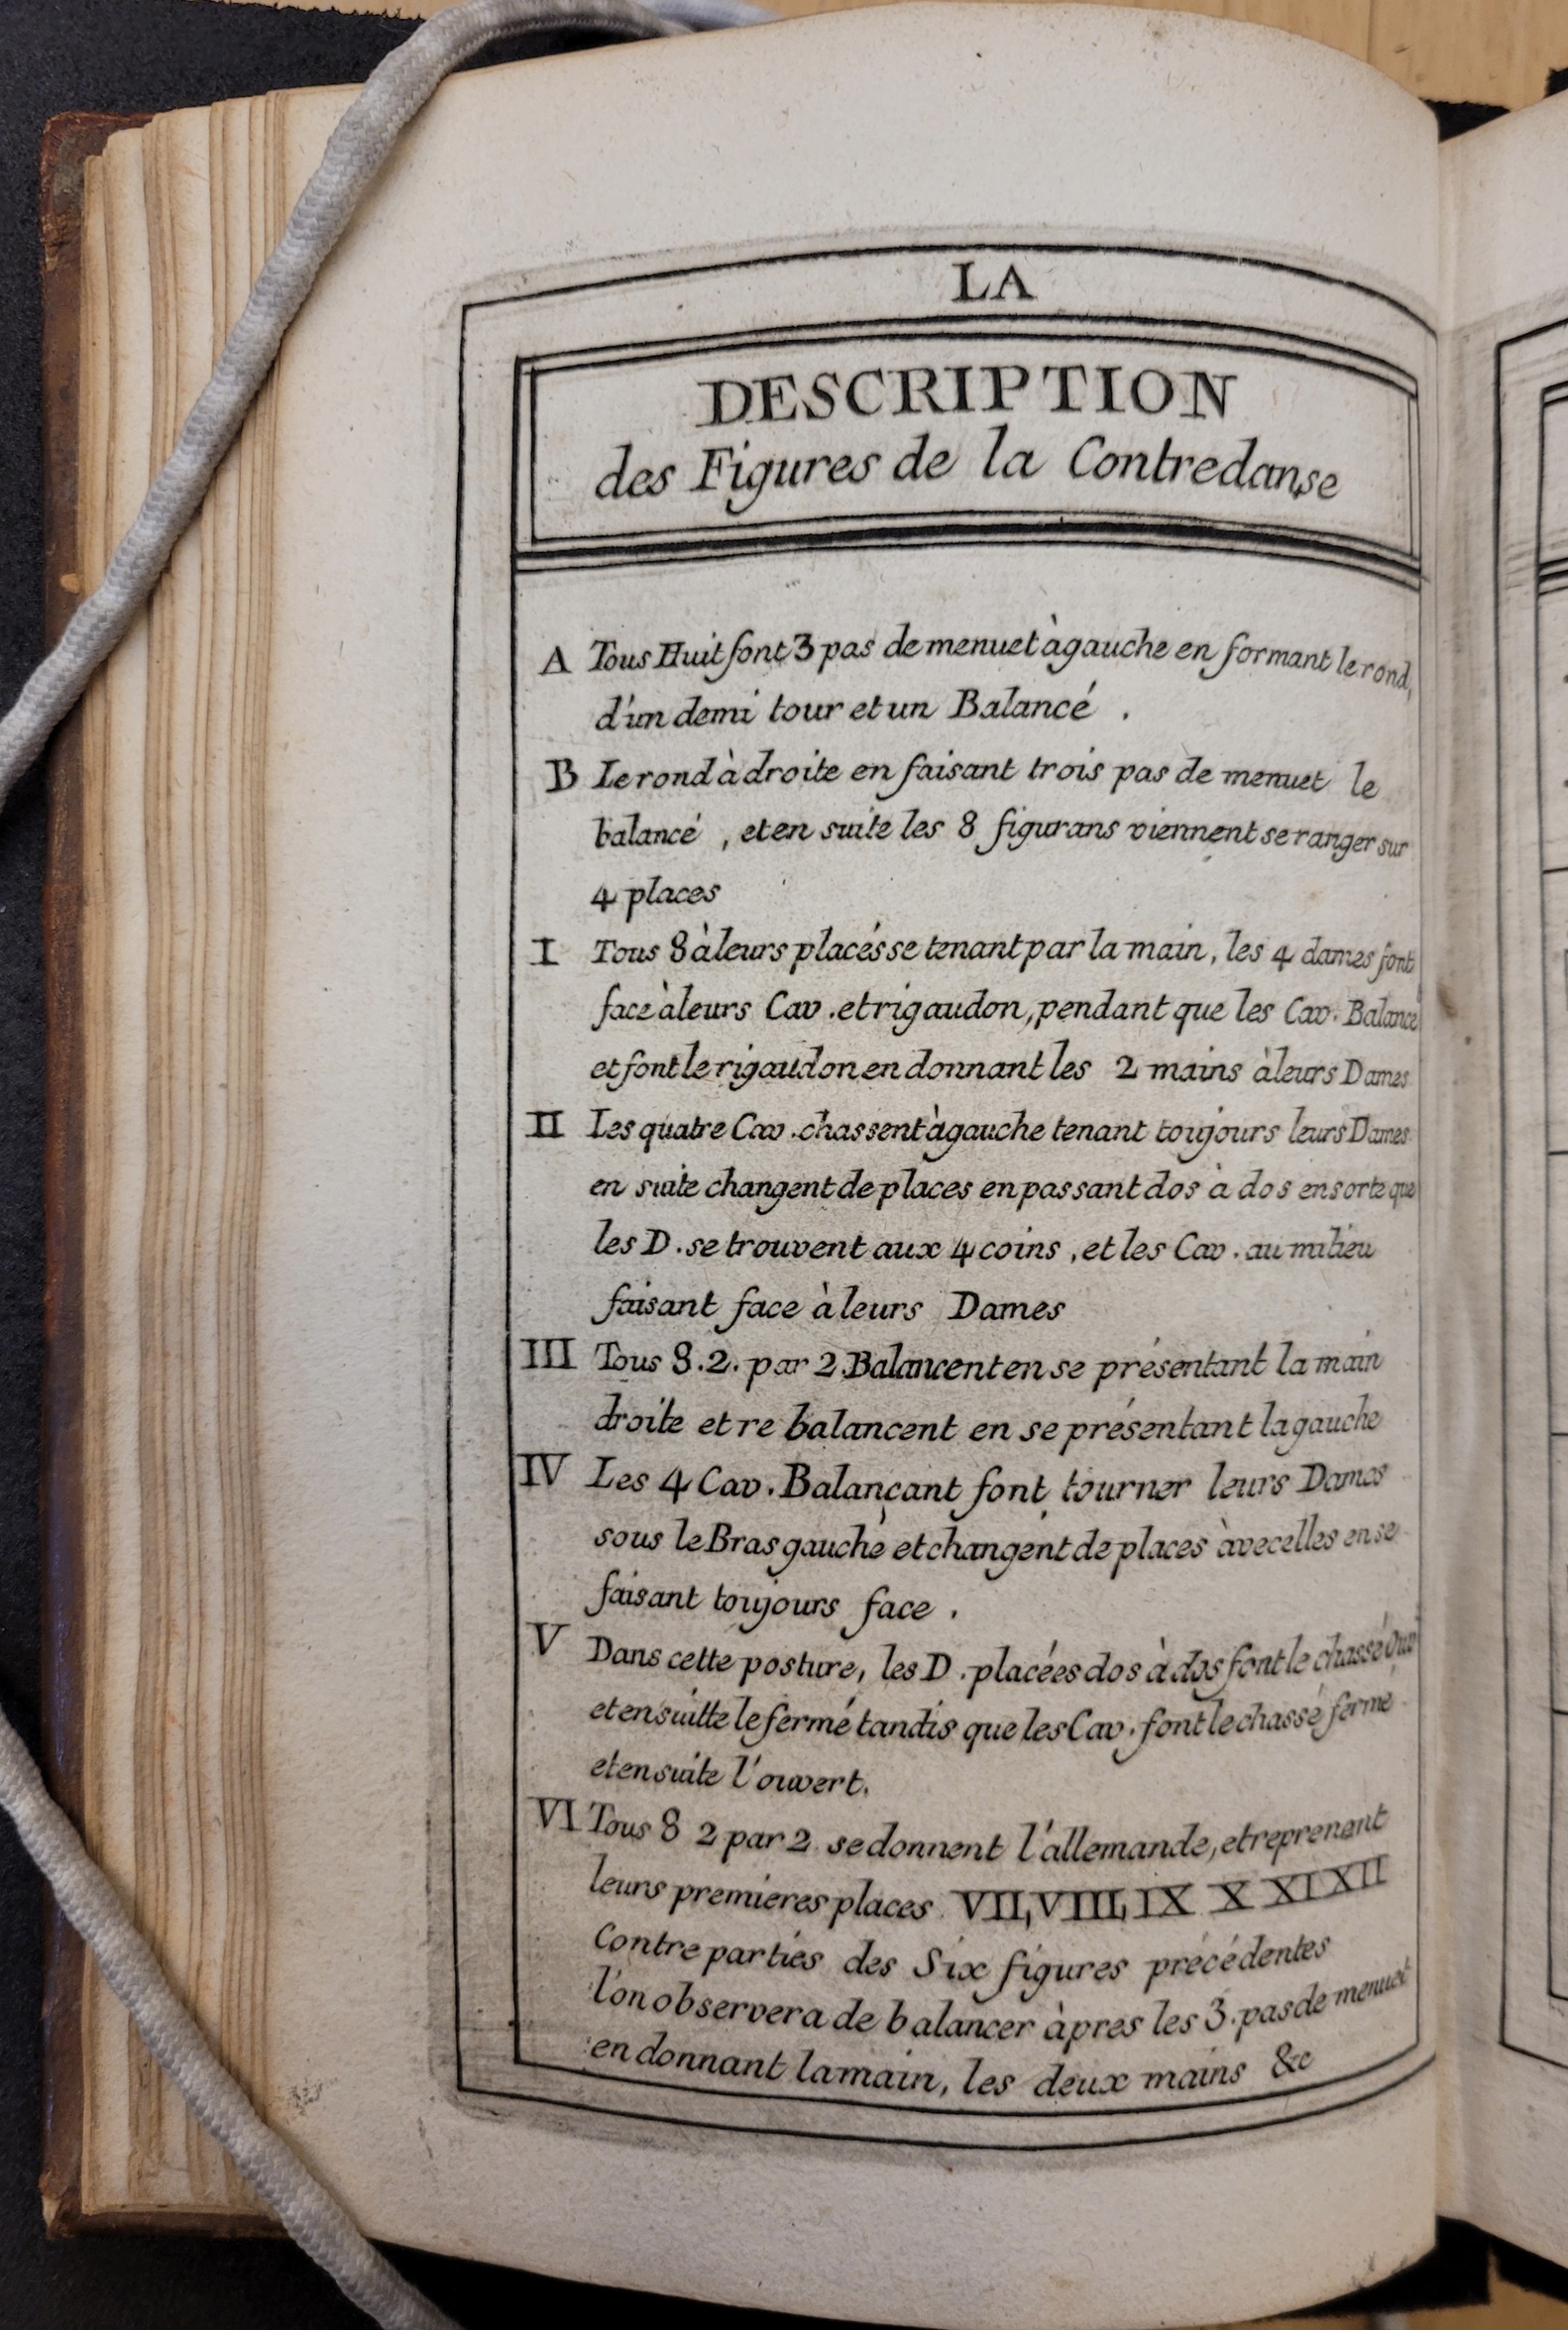 LA
DESCRIPTION
des Figures de la Contredanse
A Tous Huit font 3 pas de menuet à gauche en formant le rond,
d'un demi tour et un Balancé .
B Le rond à droite en faisant trois pas de menuet le
balancé , et en suite les 8 figurans viennent se ranger sur
4 places
I Tous 8 à leurs placés se tenant par la main, les 4 dames font
face à leurs Cav . et rigaudon, pendant que les Cav. Balance
et font le rigaudon en donnant les 2 mains à leurs Dames
II Les quatre Cav . chassent à gauche tenant toujours leurs Dames
en suite changent de places en passant dos à dos ensorte que
les D . se trouvent aux 4 coins , et les Cav . au milieu
faisant face à leurs Dames
III Tous 8 . 2 . par 2 Balancent en se présentant la main
droite et re balancent en se présentant la gauche
IV Les 4 Cav . Balançant font tourner leurs Dames
sous le Bras gauche et changent de places àvec elles en se
faisant toujours face .
V Dans cette posture, les D . placées dos à dos font le chassé
et en suitte le fermé tandis que les Cav . font le chassé fermé
et en suite l'ouvert.
VI Tous 8 2 par 2 se donnent l'allemande, et reprenent
leurs premieres places VII, VIII, IX X XI XII
Contre parties des Six figures précédentes
l'on observera de balancer àpres les 3 . pas de menuet
en donnant la main, les deux mains &c